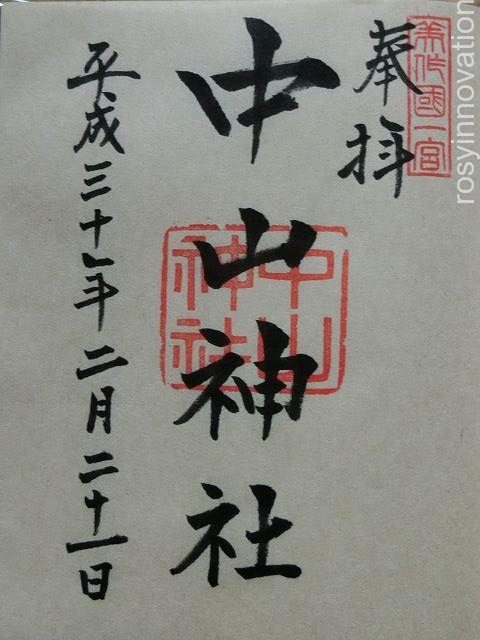 美作國一宮
奉拝
中山神社
中山神社
平成三十年二月二十一日
rosyinnovation